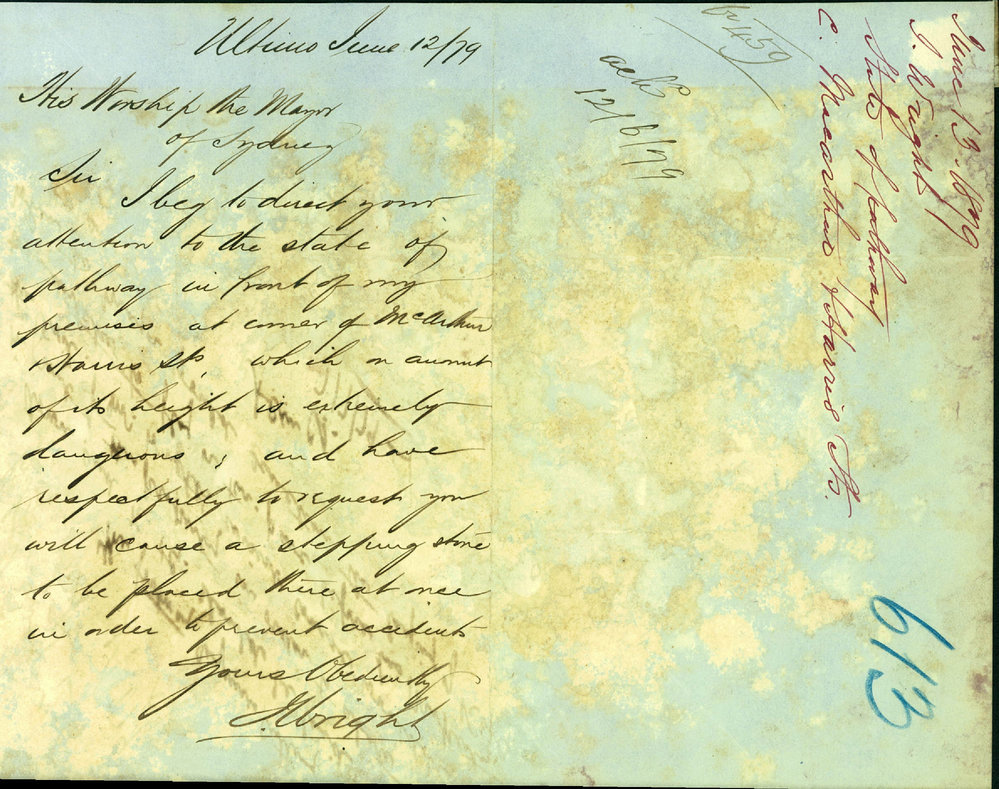 Ultimo June 12/79
His Worship the Mayor
of Sydney
Sir
I beg to direct your
attention to the state of
pathway in front of my
premises at corner of McArthur
& Harris Sts, which on account
of its height is extremely
dangerous, and have
respectfully to request you
will cause a stepping stone
to be placed there at once
in order to prevent accidents
Yours Obediently
J Wright
459
ackd
12/6/79
June 13. 1879
J. Wright
State of pathway
c. Macarthur & Harris Sts.
613